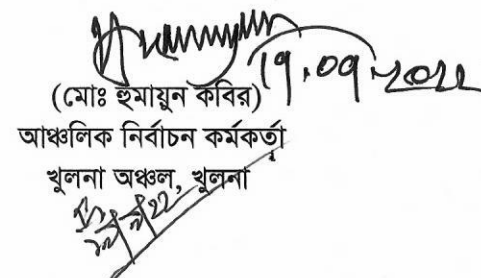 19.09.2022
(মোঃ হুমায়ুন কবির)
আঞ্চলিক নির্বাচন কর্মকর্তা
খুলনা অঞ্চল, খুলনা